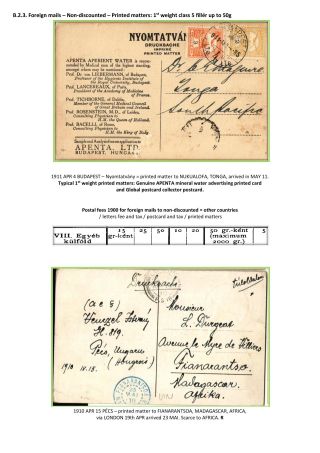 B.2.3. Foreign mails – Non-discounted – Printed matters: 1st weight class 5 fillér up to 50g
NYOMTATVÁNY
DRUCKSACHE
IMPRIMÉ
PRINTED MATTER
APENTA APERIENT WATER is recommended by Medical men of the highest standing, amongst whom may be mentioned:
Prof. Dr. von LIEBERMANN, of Budapest,
Professor of the Hygienic Institute of Budapest.
Prof. LANCEREAUX, of Paris,
President of the Academy of Medicine of France.
Prof. TICHBORNE, of Dublin,
Member of the General Medical Council of Great Britain and Ireland.
Prof. ROSENSTEIN, M.D., of Leiden,
Consulting Physician to H.M. the Queen of Holland.
Prof. BACELLI, of Rome,
Consulting Physician to H.M. the King of Italy
Samples and Formulas on application
APENTA, LTD.
BUDAPEST, HUNGARY.
Tonga
South Pacific
1911 APR 4 BUDAPEST – Nyomtatvány = printed matter to NUKUALOFA, TONGA, arrived in MAY 11.
Typical 1st weight printed matters: Genuine APENTA mineral water advertising printed card
and Global postcard collector postcard.
Postal fees 1900 for foreign mails to non-discounted = other countries
/ letters fee and tax / postcard and tax / printed matters
VIII. Egyéb külföld
15 gr-ként
25
50
10
20
50 gr.-ként (maximum 2000 gr.)
5
Drucksache
Tuloldalon
(a c §)
Venczel István
H. 819.
Pécs, Ungarn
(Hongrois)
1910. IV. 15.
Monsieur
L. Durgeat
Avenue le Myre de Villers
Fianarantsoa
Madagascar,
Afrika.
1910 APR 15 PÉCS – printed matter to FIANARANTSOA, MADAGASCAR, AFRICA,
via LONDON 19th APR arrived 23 MAI. Scarce to AFRICA. R